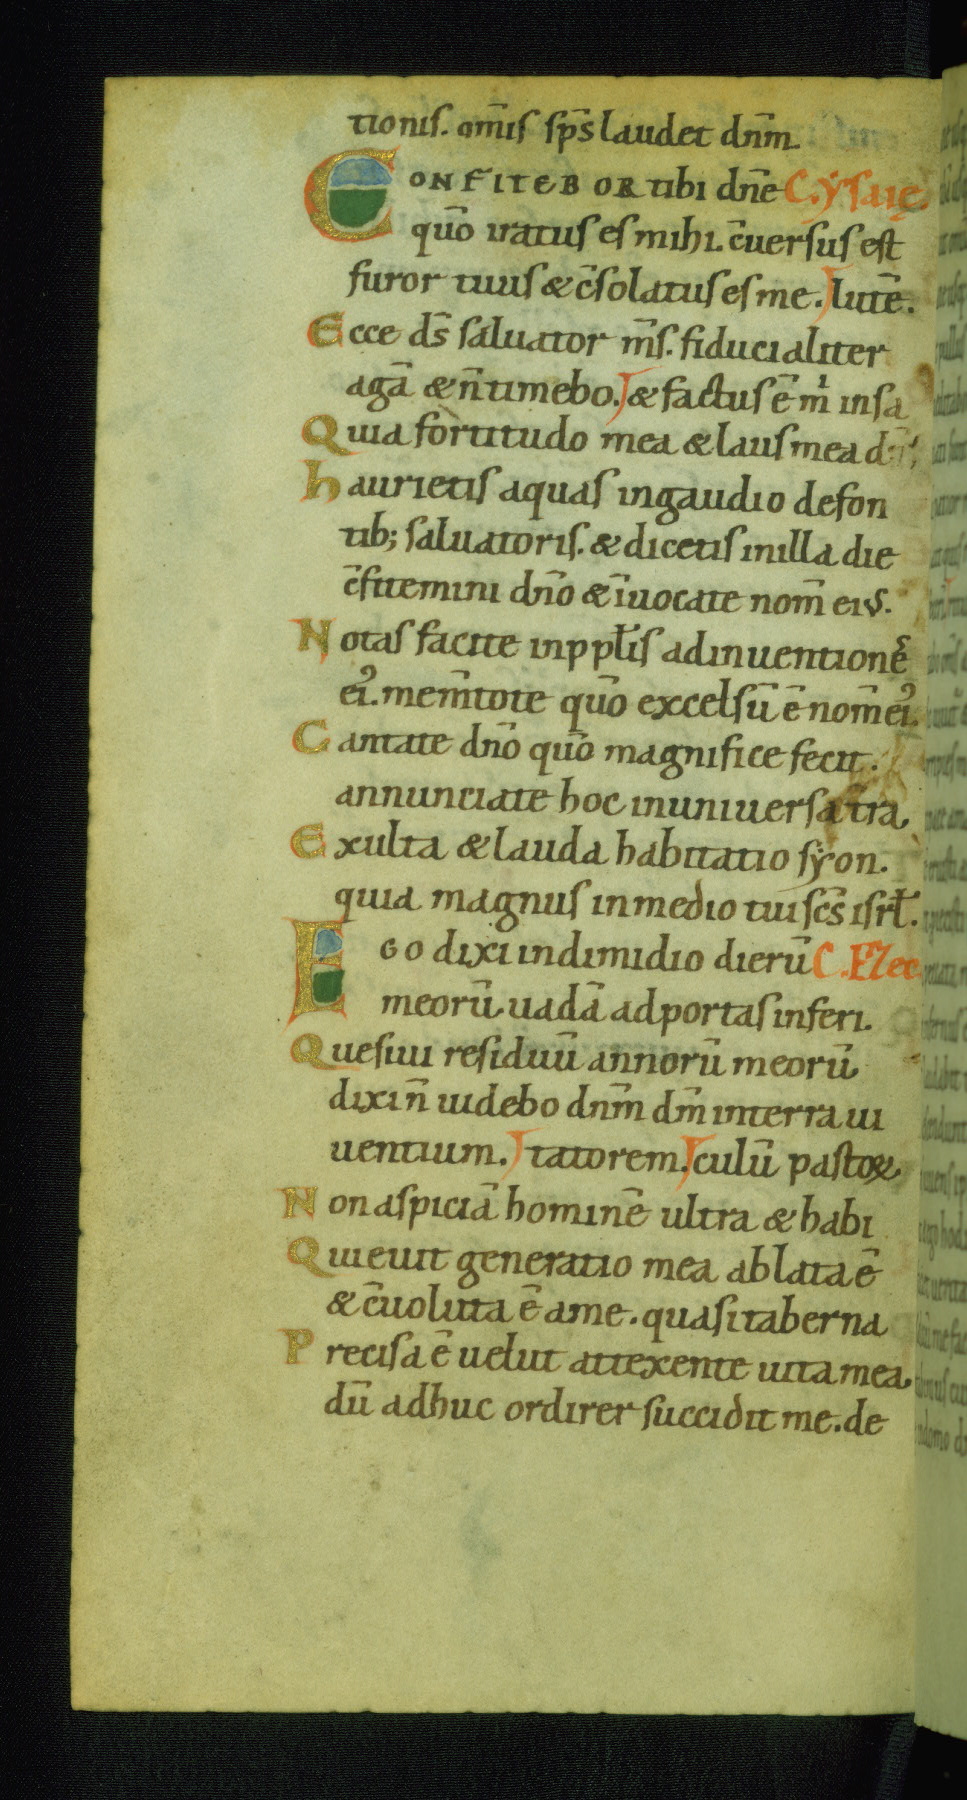 tionis. om̄is sp̄s laudet dn̄m.
CONFITEBOR tibi dn̄e C. ẏsaię.
quō iratus es mihi. c̄uersus est
furor tuus & c̄solatus es me. lutē.
Ecce ds̄ saluator m̄s. fiducialiter
agā & n̄ timebo. & factus ē m̍ in sa
Quia fortitudo mea & laus mea
haurietis aquas in gaudio de fon
tib; saluatoris. & dicetis in illa die
c̄fitemini dn̄o & īuocate nom̄ eius.
Notas facite in pplīs adinuentionē
ei᾿. mem̄tote quō excelsū ē nom̄ ei᾿.
Cantate dn̄o quō magnifice fecit.
annunciate hoc in uniuersa t̄ra.
Exulta & lauda habitatio sẏon.
quia magnus in medio tui sc̄s isrł.
EGO dixi in dimidio dierū C. EZec
meorū. uadā ad portas inferi.
Quesiui residuū annorū meorū.
dixi n̄ uidebo dn̄m dm̄ in terra ui
uentium. tatorem. culū pastoꝝ
Non aspiciā hominē ultra & habi
Quieuit generatio mea ablata ē
& c̄uoluta ē a me. quasi taberna
Precisa ē uelut a texente uita mea.
dū adhuc ordirer succidit me. de